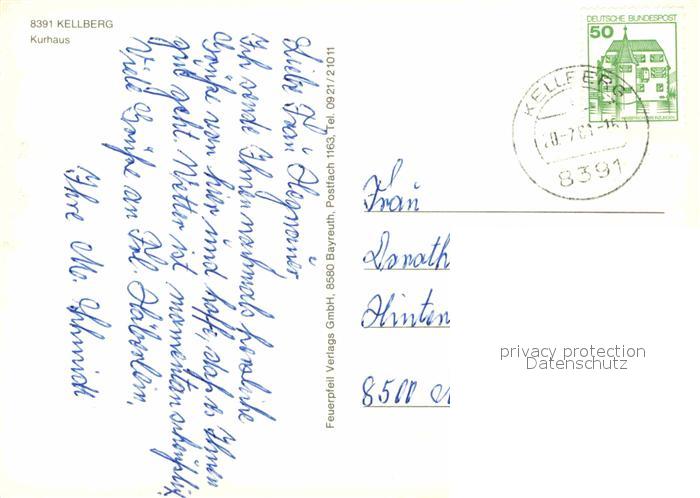 8391 KELLBERG
Kurhaus
Liebe Frau
Ich sende Ihnen nochmals herzliche
Grüße von hier und hoffe, daß es Ihnen
gut geht. Wetter ist momentan scheußlich
Viele Grüße an Frl.
Ihre M. Schmidt
Feuerpfeil Verlags GmbH, 8580 Bayreuth, Postfach 1163, Tel. 0921/21011
DEUTSCHE BUNDESPOST
50
KELLBERG
8391
Frau
Hinten
8500
privacy protection
Datenschutz